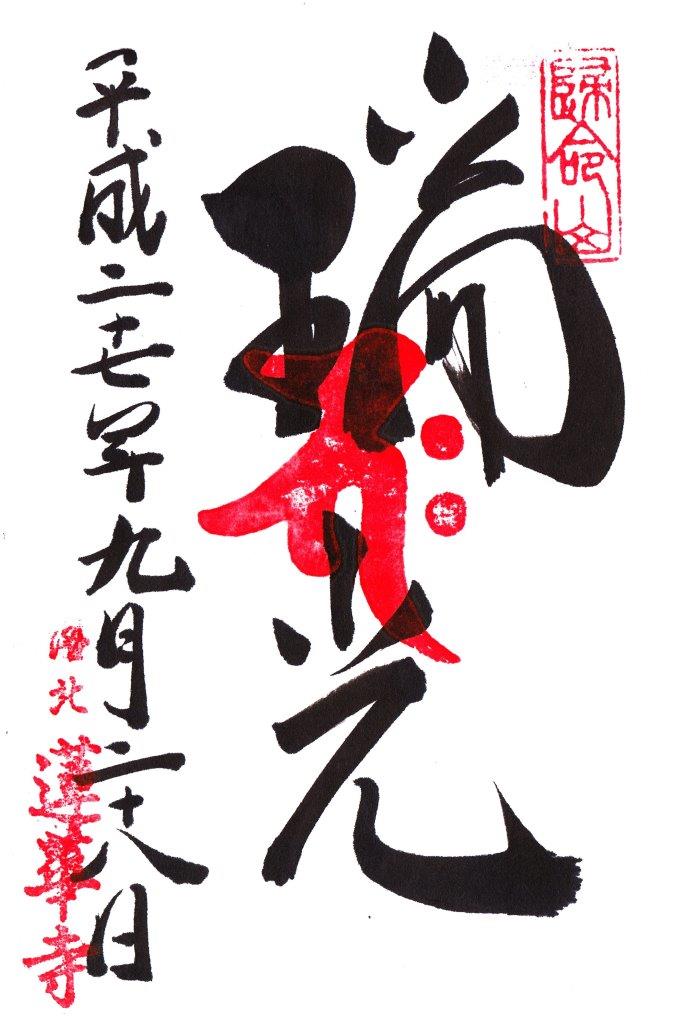 歸命山
瑞光
平成二十七年九月二十八日
洛北
蓮華寺